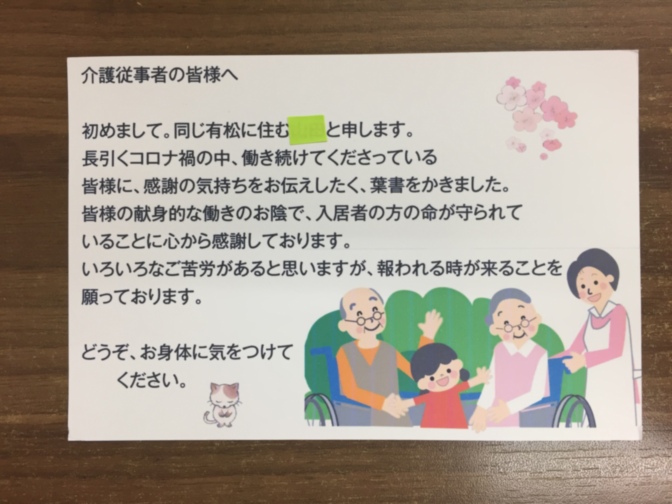 介護従事者の皆様へ
初めまして。同じ有松に住む と申します。
長引くコロナ禍の中、働き続けてくださっている
皆様に、感謝の気持ちをお伝えしたく、葉書をかきました。
皆様の献身的な働きのお陰で、入居者の方の命が守られて
いることに心から感謝しております。
いろいろなご苦労があると思いますが、報われる時が来ることを
願っております。
どうぞ、お身体に気をつけて
ください。